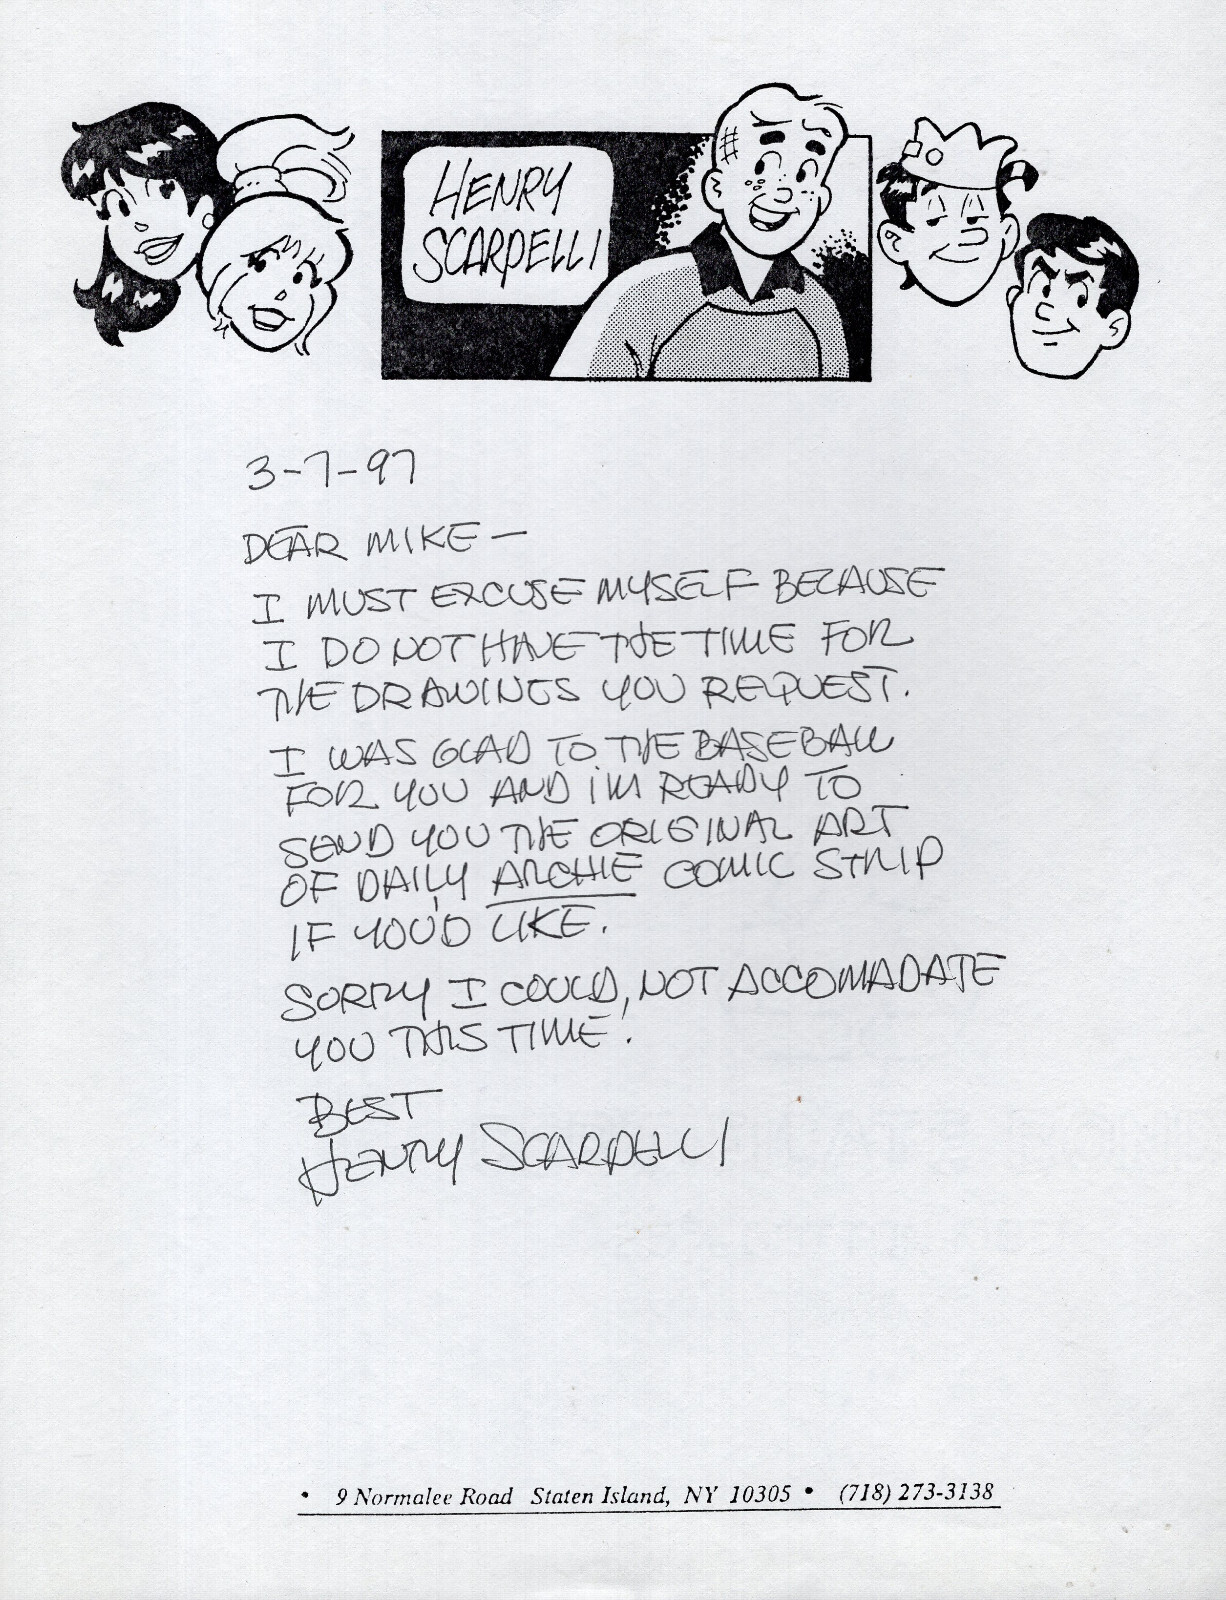 HENRY
SCARPELLI
3-7-97
DEAR MIKE —
I MUST EXCUSE MYSELF BECAUSE
I DO NOT HAVE THE TIME FOR
THE DRAWINGS YOU REQUEST.
I WAS GLAD TO THE BASEBALL
FOR YOU AND I'M READY TO
SEND YOU THE ORIGINAL ART
OF DAILY ARCHIE COMIC STRIP
IF YOU'D LIKE.
SORRY I COULD, NOT ACCOMADATE
YOU THIS TIME!
BEST
HENRY SCARPELLI
• 9 Normalee Road Staten Island, NY 10305 • (718) 273-3138